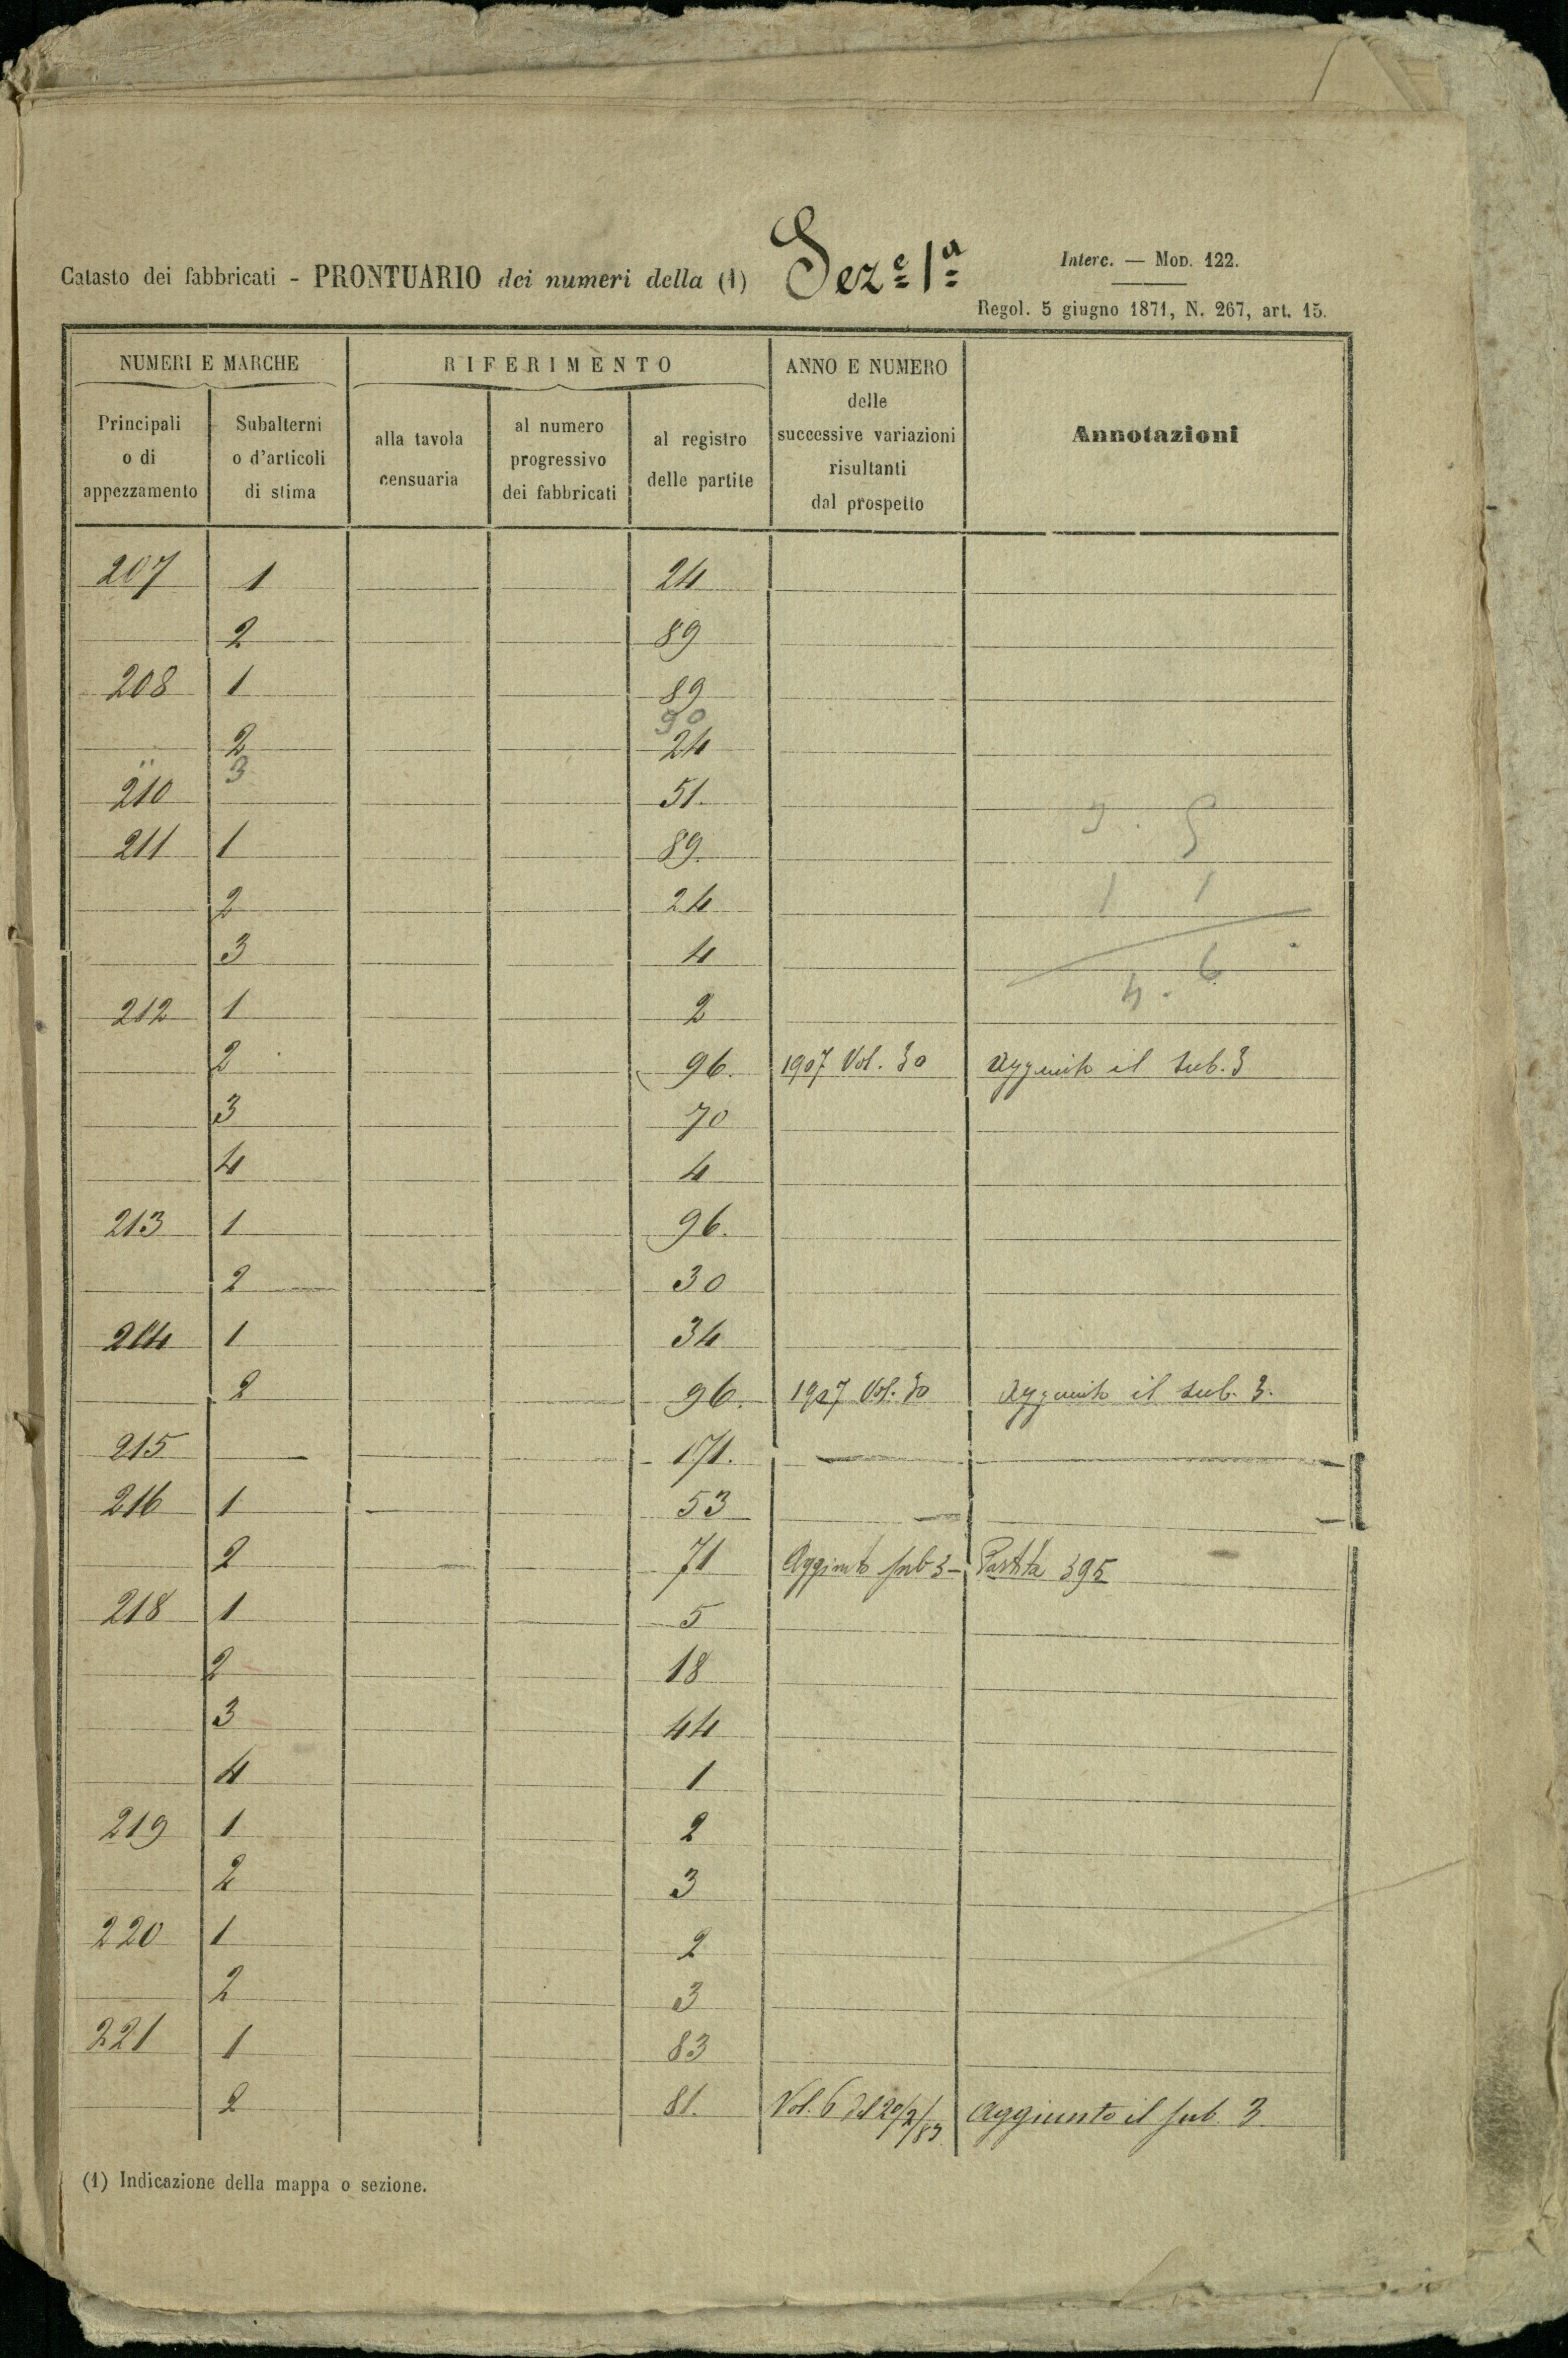 Catasto dei fabbricati - PRONTUARIO dei numeri della (1) Sez.e 1a
Interc. — Mod. 122.
Regol. 5 giugno 1871, N. 267, art. 15.
NUMERI E MARCHE
RIFERIMENTO
ANNO E NUMERO
delle
successive variazioni
risultanti
dal prospetto
Annotazioni
Principali
o di
appezzamento
Subalterni
o d'articoli
di stima
alla tavola
censuaria
al numero
progressivo
dei fabbricati
al registro
delle partite
207 1 24
2 89
208 1 89
90
2 24
" 3
210 51.
211 1 89.
2 24
3 4
212 1 2
2 96. 1907 Vol. 30 Aggiunto il sub. 3
3 70
4 4
213 1 96.
2 30
214 1 34
2 96. 1907 Vol. 30 Aggiunto il sub. 3.
215 — 171. —
216 1 53
2 71 Aggiunto sub 3 - Partita 395
218 1 5
2 18
3 44
4 1
219 1 2
2 3
220 1 2
2 3
221 1 83
2 81. Vol. 6 del 20/2/83 Aggiunto il sub. 3
3 . 5
1 1
4 . 6
(1) Indicazione della mappa o sezione.